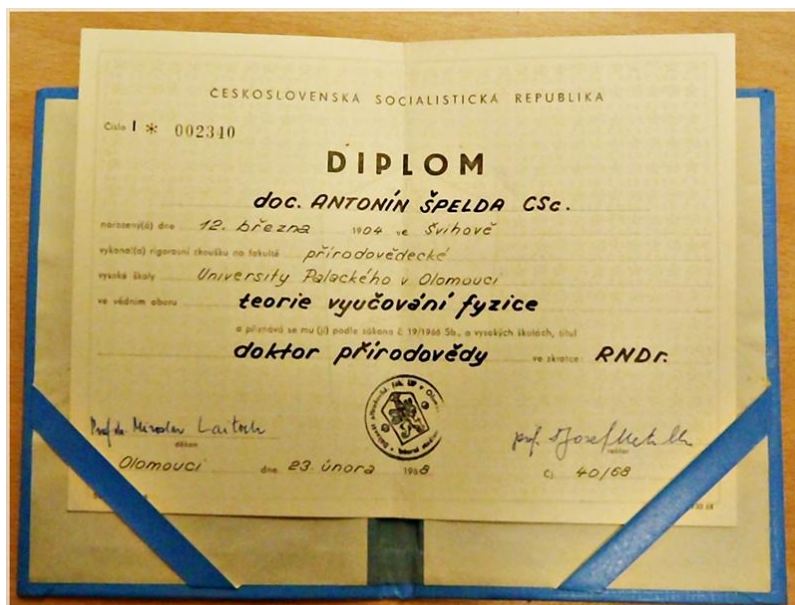 ČESKOSLOVENSKÁ SOCIALISTICKÁ REPUBLIKA
Číslo I * 002340
DIPLOM
doc. ANTONÍN ŠPELDA CSc.
narozený(á) dne 12. března 1904 ve Švihově
vykonal(a) rigorosní zkoušku na fakultě přírodovědecké
vysoké školy University Palackého v Olomouci
ve vědním oboru teorie vyučování fyzice
a přiznává se mu (jí) podle zákona č. 19/1966 Sb., o vysokých školách, titul
doktor přírodovědy ve zkratce: RNDr.
Prof. dr. Miroslav Laitoch prof. Josef
děkan rektor
Olomouci dne 23. února 1968 Čj 40/68